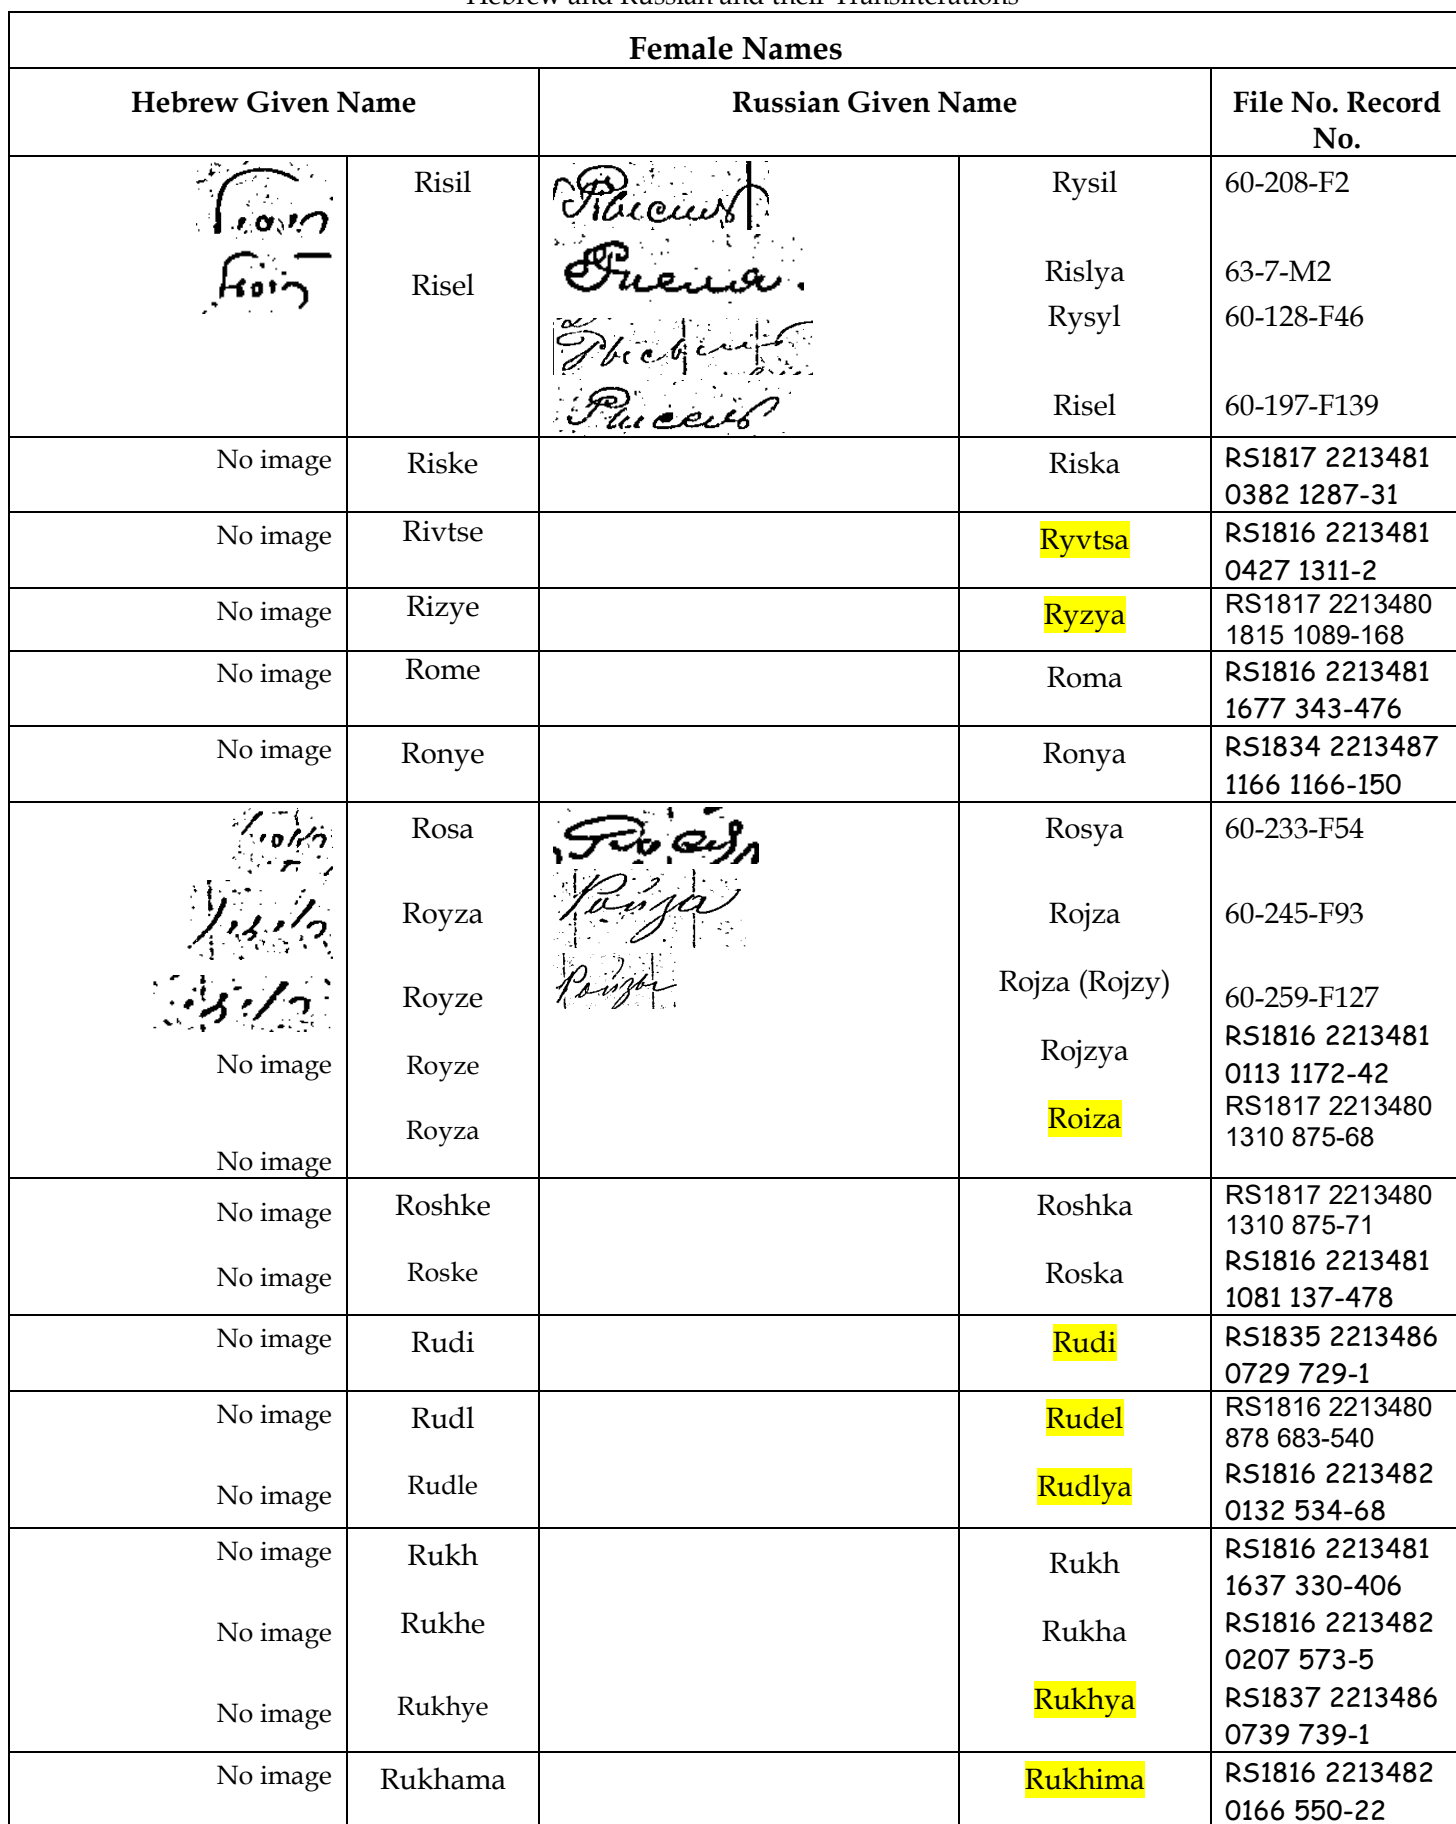 Hebrew and Russian and their Transliterations
Female Names
Hebrew Given Name Russian Given Name File No. Record No.
Risil Рысиль Rysil 60-208-F2
Risel Rislya 63-7-M2
Rysyl 60-128-F46
Рисель Risel 60-197-F139
No image Riske Riska RS1817 2213481
0382 1287-31
No image Rivtse Ryvtsa RS1816 2213481
0427 1311-2
No image Rizye Ryzya RS1817 2213480
1815 1089-168
No image Rome Roma RS1816 2213481
1677 343-476
No image Ronye Ronya RS1834 2213487
1166 1166-150
Rosa Rosya 60-233-F54
Royza Ройза Rojza 60-245-F93
Royze Ройзы Rojza (Rojzy) 60-259-F127
No image Royze Rojzya RS1816 2213481
0113 1172-42
No image Royza Roiza RS1817 2213480
1310 875-68
No image Roshke Roshka RS1817 2213480
1310 875-71
No image Roske Roska RS1816 2213481
1081 137-478
No image Rudi Rudi RS1835 2213486
0729 729-1
No image Rudl Rudel RS1816 2213480
878 683-540
No image Rudle Rudlya RS1816 2213482
0132 534-68
No image Rukh Rukh RS1816 2213481
1637 330-406
No image Rukhe Rukha RS1816 2213482
0207 573-5
No image Rukhye Rukhya RS1837 2213486
0739 739-1
No image Rukhama Rukhima RS1816 2213482
0166 550-22